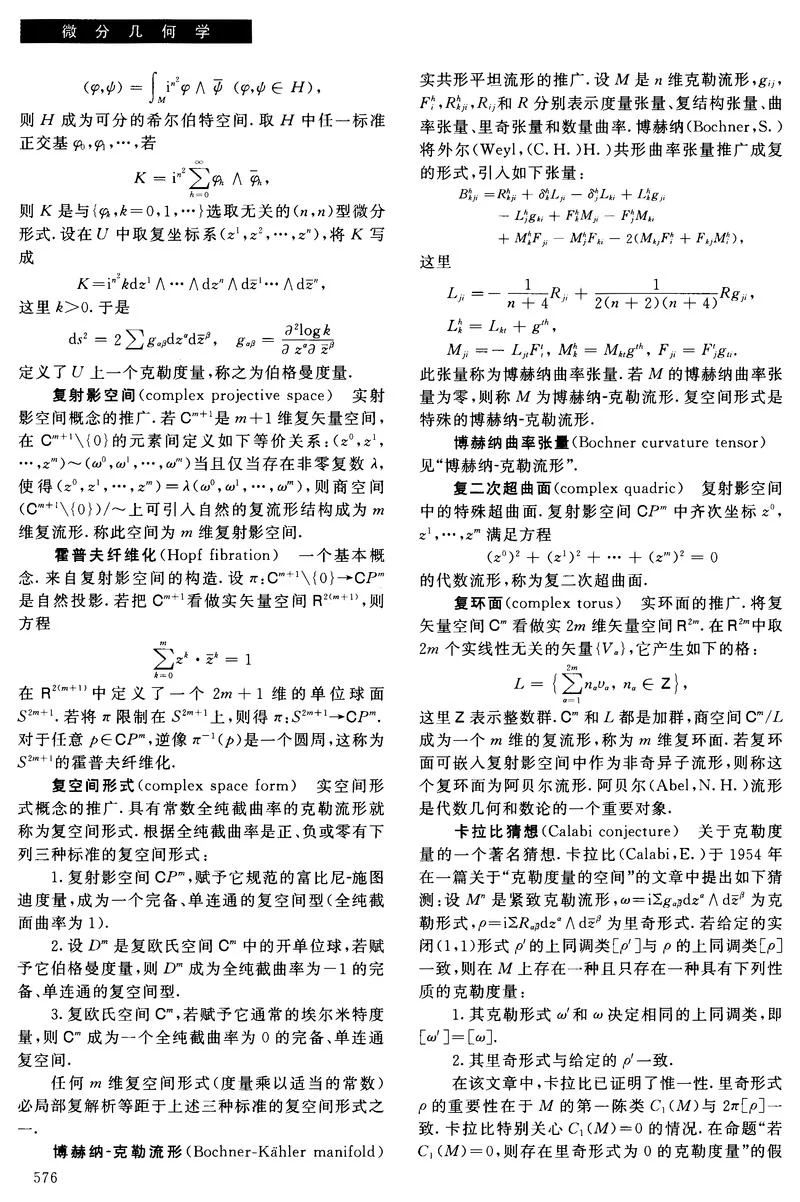 微分几何学
(φ,ψ) = ∫_M i^{n²} φ ∧ ψ̄ (φ,ψ∈H),
则 H 成为可分的希尔伯特空间. 取 H 中任一标准
正交基 φ₀,φ₁,…,若
K = i^{n²} ∑_{h=0}^{∞} φ_h ∧ φ̄_h,
则 K 是与{φ_k,k=0,1,…}选取无关的(n,n)型微分
形式. 设在 U 中取复坐标系(z¹,z²,…,zⁿ),将 K 写
成
K=i^{n²}kdz¹∧…∧dzⁿ∧dz̄¹…∧dz̄ⁿ,
这里 k>0. 于是
ds² = 2∑g_{αβ}dz^αdz̄^β, g_{αβ} = ∂²log k / ∂z^α∂z̄^β
定义了 U 上一个克勒度量,称之为伯格曼度量.
复射影空间(complex projective space) 实射
影空间概念的推广. 若 C^{m+1}是 m+1 维复矢量空间,
在 C^{m+1}\{0}的元素间定义如下等价关系:(z⁰,z¹,
…,z^m)～(ω⁰,ω¹,…,ω^m)当且仅当存在非零复数 λ,
使得(z⁰,z¹,…,z^m)=λ(ω⁰,ω¹,…,ω^m),则商空间
(C^{m+1}\{0})/～上可引入自然的复流形结构成为 m
维复流形. 称此空间为 m 维复射影空间.
霍普夫纤维化(Hopf fibration) 一个基本概
念. 来自复射影空间的构造. 设 π:C^{m+1}\{0}→CP^m
是自然投影. 若把 C^{m+1}看做实矢量空间 R^{2(m+1)},则
方程
∑_{k=0}^{m} z^k · z̄^k = 1
在 R^{2(m+1)}中定义了一个 2m+1 维的单位球面
S^{2m+1}. 若将 π 限制在 S^{2m+1}上,则得 π:S^{2m+1}→CP^m.
对于任意 p∈CP^m,逆像 π⁻¹(p)是一个圆周,这称为
S^{2m+1}的霍普夫纤维化.
复空间形式(complex space form) 实空间形
式概念的推广. 具有常数全纯截曲率的克勒流形就
称为复空间形式. 根据全纯截曲率是正、负或零有下
列三种标准的复空间形式:
1. 复射影空间 CP^m,赋予它规范的富比尼-施图
迪度量,成为一个完备、单连通的复空间型(全纯截
面曲率为 1).
2. 设 D^m 是复欧氏空间 C^m 中的开单位球,若赋
予它伯格曼度量,则 D^m 成为全纯截曲率为−1 的完
备、单连通的复空间型.
3. 复欧氏空间 C^m,若赋予它通常的埃尔米特度
量,则 C^m 成为一个全纯截曲率为 0 的完备、单连通
复空间.
任何 m 维复空间形式(度量乘以适当的常数)
必局部复解析等距于上述三种标准的复空间形式之
一.
博赫纳-克勒流形(Bochner-Kähler manifold)
576
实共形平坦流形的推广. 设 M 是 n 维克勒流形,g_{ij},
F_i^h,R_{kji}^h,R_{ij}和 R 分别表示度量张量、复结构张量、曲
率张量、里奇张量和数量曲率. 博赫纳(Bochner,S.)
将外尔(Weyl,(C. H.)H.)共形曲率张量推广成复
的形式,引入如下张量:
B_{kji}^h = R_{kji}^h + δ_k^h L_{ji} − δ_j^h L_{ki} + L_k^h g_{ji}
− L_j^h g_{ki} + F_k^h M_{ji} − F_j^h M_{ki}
+ M_k^h F_{ji} − M_j^h F_{ki} − 2(M_{kj}F_i^h + F_{kj}M_i^h),
这里
L_{ji} = − 1/(n+4) R_{ji} + 1/(2(n+2)(n+4)) Rg_{ji},
L_k^h = L_{kt} + g^{th},
M_{ji} = − L_{jt}F_i^t, M_k^h = M_{kt}g^{th}, F_{ji} = F_j^t g_{ti}.
此张量称为博赫纳曲率张量. 若 M 的博赫纳曲率张
量为零,则称 M 为博赫纳-克勒流形. 复空间形式是
特殊的博赫纳-克勒流形.
博赫纳曲率张量(Bochner curvature tensor)
见“博赫纳-克勒流形”.
复二次超曲面(complex quadric) 复射影空间
中的特殊超曲面. 复射影空间 CP^m 中齐次坐标 z⁰,
z¹,…,z^m 满足方程
(z⁰)² + (z¹)² + … + (z^m)² = 0
的代数流形,称为复二次超曲面.
复环面(complex torus) 实环面的推广. 将复
矢量空间 C^m 看做实 2m 维矢量空间 R^{2m}. 在 R^{2m}中取
2m 个实线性无关的矢量{V_α},它产生如下的格:
L = {∑_{α=1}^{2m} n_α v_α, n_α ∈ Z},
这里 Z 表示整数群. C^m 和 L 都是加群,商空间 C^m/L
成为一个 m 维的复流形,称为 m 维复环面. 若复环
面可嵌入复射影空间中作为非奇异子流形,则称这
个复环面为阿贝尔流形. 阿贝尔(Abel,N. H.)流形
是代数几何和数论的一个重要对象.
卡拉比猜想(Calabi conjecture) 关于克勒度
量的一个著名猜想. 卡拉比(Calabi,E.)于 1954 年
在一篇关于“克勒度量的空间”的文章中提出如下猜
测:设 Mⁿ 是紧致克勒流形,ω=iΣg_{αβ̄}dz^α∧dz̄^β 为克
勒形式,ρ=iΣR_{αβ̄}dz^α∧dz̄^β 为里奇形式. 若给定的实
闭(1,1)形式 ρ′的上同调类[ρ′]与 ρ 的上同调类[ρ]
一致,则在 M 上存在一种且只存在一种具有下列性
质的克勒度量:
1. 其克勒形式 ω′和 ω 决定相同的上同调类,即
[ω′]=[ω].
2. 其里奇形式与给定的 ρ′一致.
在该文章中,卡拉比已证明了惟一性. 里奇形式
ρ 的重要性在于 M 的第一陈类 C₁(M)与 2π[ρ]一
致. 卡拉比特别关心 C₁(M)=0 的情况. 在命题“若
C₁(M)=0,则存在里奇形式为 0 的克勒度量”的假